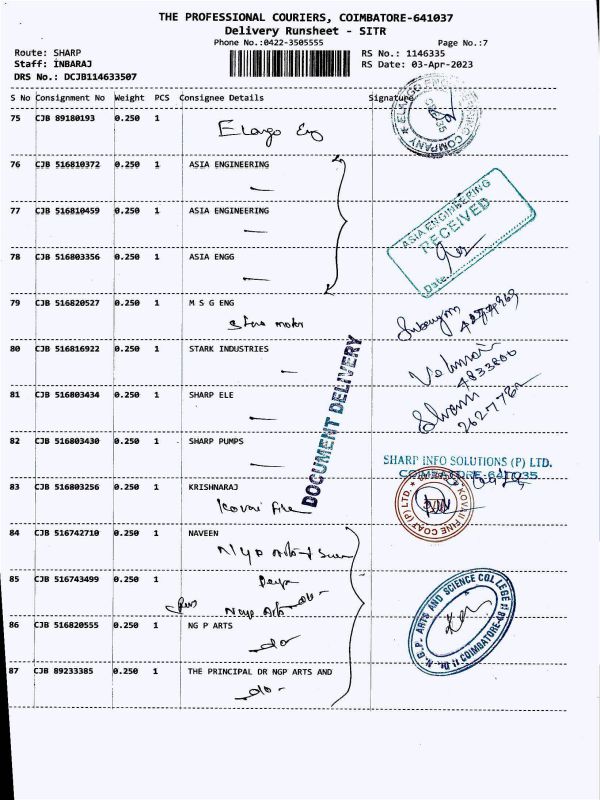 THE PROFESSIONAL COURIERS, COIMBATORE-641037
Delivery Runsheet - SITR
Phone No.:0422-3505555 Page No.:7
Route: SHARP RS No.: 1146335
Staff: INBARAJ RS Date: 03-Apr-2023
DRS No.: DCJB114633507
S No Consignment No Weight PCS Consignee Details Signature
75 CJB 89180193 0.250 1
Elango Eng
76 CJB 516810372 0.250 1 ASIA ENGINEERING
77 CJB 516810459 0.250 1 ASIA ENGINEERING
ASIA ENGINEERING
RECEIVED
Date
78 CJB 516803356 0.250 1 ASIA ENGG
79 CJB 516820527 0.250 1 M S G ENG
80 CJB 516816922 0.250 1 STARK INDUSTRIES
4833866
81 CJB 516803434 0.250 1 SHARP ELE
DOCUMENT DELIVERY
82 CJB 516803430 0.250 1 SHARP PUMPS
SHARP INFO SOLUTIONS (P) LTD.
COIMBATORE-641035
83 CJB 516803256 0.250 1 KRISHNARAJ
Kovai Fine
KOVAI FINE COAT (P) LTD.
84 CJB 516742710 0.250 1 NAVEEN
85 CJB 516743499 0.250 1
86 CJB 516820555 0.250 1 NG P ARTS
-do-
N.G.P. ARTS AND SCIENCE COLLEGE
COIMBATORE-48
87 CJB 89233385 0.250 1 THE PRINCIPAL DR NGP ARTS AND
-do-